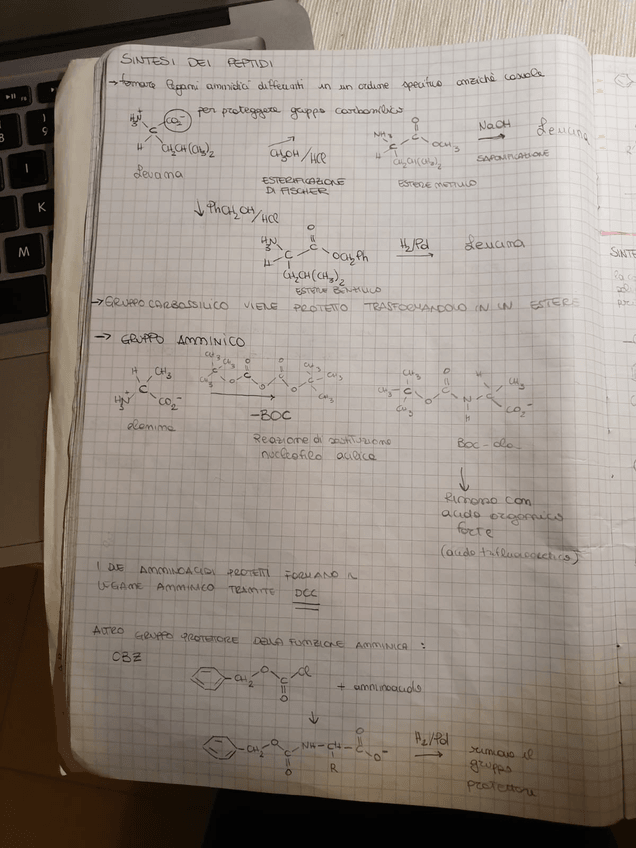 SINTESI DEI PEPTIDI
→ formare legami ammidici differenti in un ordine specifico anziché casuale
per proteggere gruppo carbonilico
H₃N⁺ CO₂⁻
C
H CH₂CH(CH₃)₂
Leucina
CH₃OH/HCl
ESTERIFICAZIONE
DI FISCHER
O
C
OCH₃
H
CH₂CH(CH₃)₂
ESTERE METILICO
NaOH
SAPONIFICAZIONE
Leucina
↓ PhCH₂OH/HCl
O
H₃N⁺ C
C OCH₂Ph
H
CH₂CH(CH₃)₂
ESTERE BENZILICO
H₂/Pd
Leucina
→ GRUPPO CARBOSSILICO VIENE PROTETTO TRASFORMANDOLO IN UN ESTERE
→ GRUPPO AMMINICO
H CH₃
C
H₃N⁺ CO₂⁻
alanina
CH₃ CH₃ CH₃ C O C O O C O O C CH₃ CH₃ CH₃
-BOC
Reazione di sostituzione
nucleofila acilica
CH₃ CH₃ CH₃ C O C O N H C H CH₃ CO₂⁻
BOC-ala
↓
Rimosso con
acido organico
forte
(acido trifluoroacetico)
I DUE AMMINOACIDI PROTETTI FORMANO IL
LEGAME AMMINICO TRAMITE DCC
ALTRO GRUPPO PROTETTORE DELLA FUNZIONE AMMINICA :
CBZ
CH₂ O C Cl
O
+ amminoacido
↓
CH₂ O C NH-CH-C O⁻
O R O
H₂/Pd
rimuovo il
gruppo
protettore
SINTE